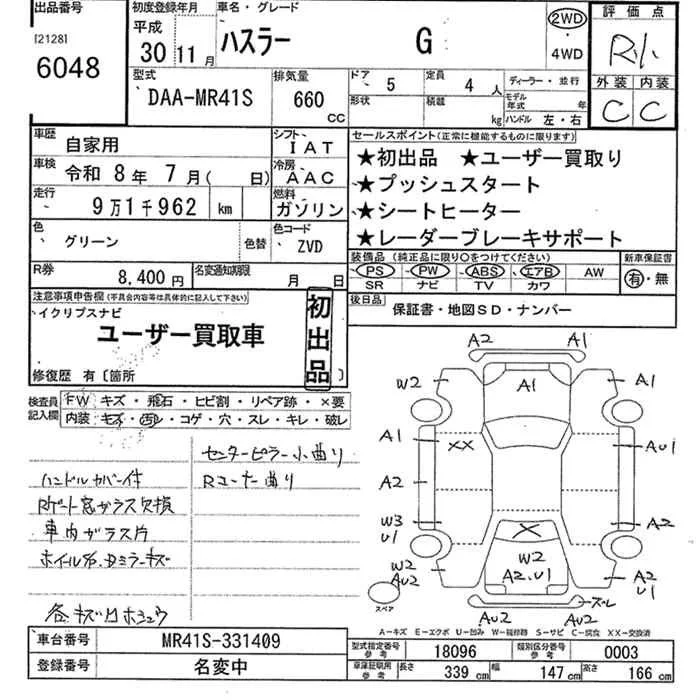 出品番号
[2128]
6048
初度登録年月
平成
30年11月
車名・グレード
ハスラー G
2WD
・
4WD
評価点
R小
外装 内装
C C
型式
DAA-MR41S
排気量
660
CC
ドア
5
定員
4人
形状
積載
kg
ディーラー・並行
モデル年式 年
ハンドル 左・右
車歴 自家用
シフト IAT
車検 令和 8年 7月( 日)
冷房 AAC
走行 9万1千962 km
燃料 ガソリン
色 グリーン
色替
色コード ZVD
R券 8,400円
名変通知期限 月 日
セールスポイント(正常に機能するものに限ります)
★初出品 ★ユーザー買取り
★プッシュスタート
★シートヒーター
★レーダーブレーキサポート
装備品(純正品に限り○をつけてください)
PS PW ABS エアB AW
SR ナビ TV カワ
新車保証書
有・無
後日品 保証書・地図SD・ナンバー
注意事項申告欄(不具合内容等は具体的に記入して下さい)
イクリプスナビ
ユーザー買取車
初出品
修復歴 有〔箇所 〕
検査員記入欄
FW キズ・飛石・ヒビ割・リペア跡・×要
内装 キズ・凹・コゲ・穴・スレ・キレ・破レ
センターピラー小曲り
ハンドルカバー付
Rコーナー曲り
Rゲート窓ガラス欠損
車内ガラス片
ホイルキズ、Dミラーキズ
各キズ凹ホシュウ
A2 A1
W2 A1 A1
A1 XX AU1
A2
W3 U1 X A2
W2 AU2 W2 A2.U1 A2 U1
スペア
AU2 AU2 ズレ
A−キズ E−エクボ U−凹み W−補修跡 S−サビ C−腐食 XX−交換済
車台番号 MR41S-331409
登録番号 名変中
型式指定番号 参考 18096
類別区分番号 参考 0003
車庫証明用 参考
長さ 339cm 幅 147cm 高さ 166cm